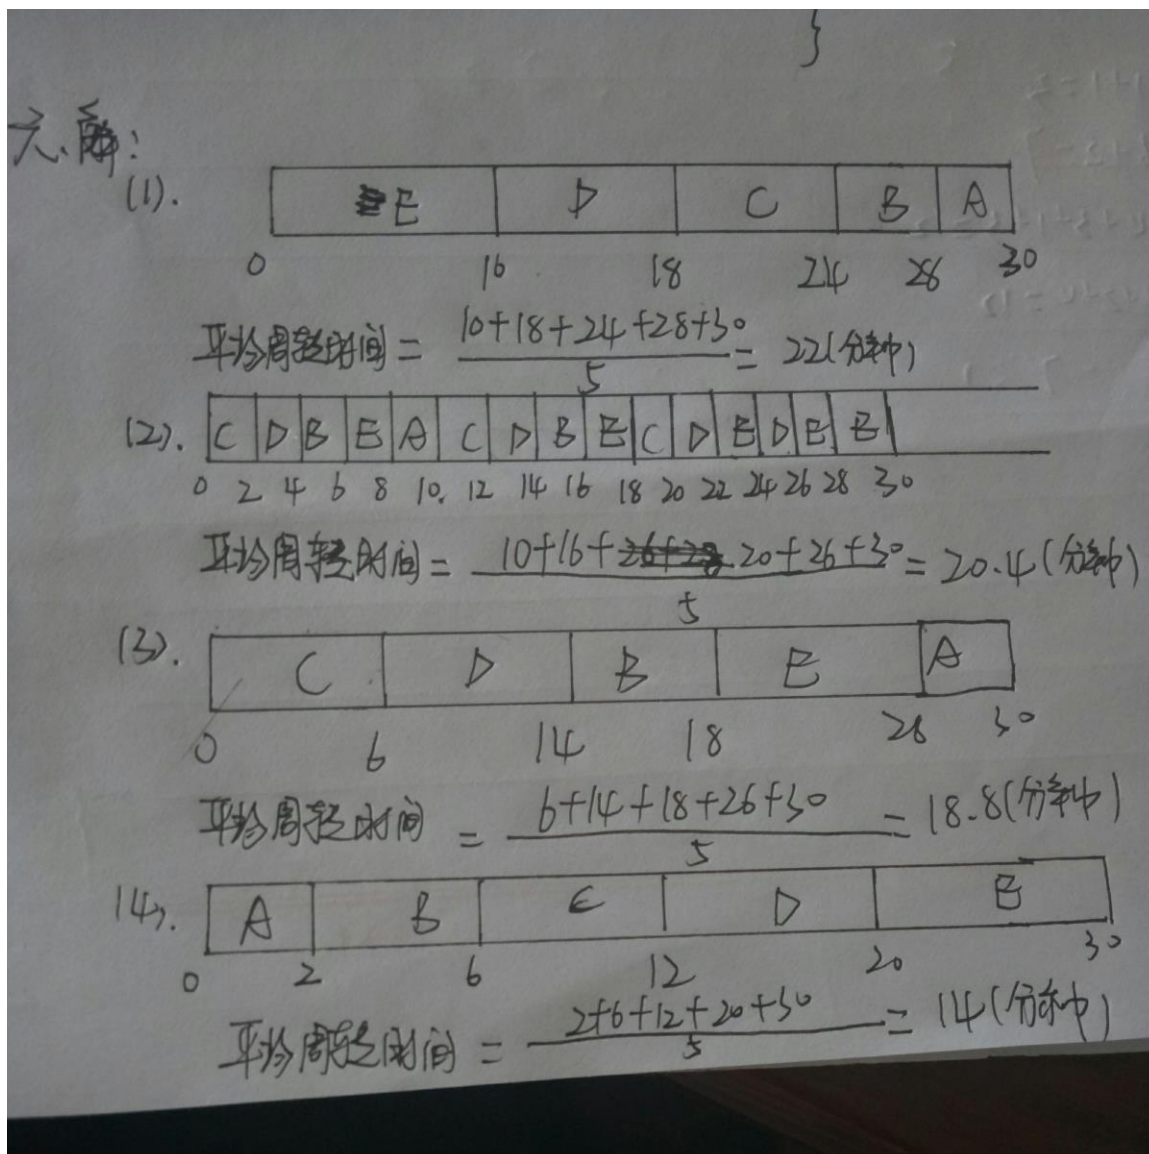 }
六、解:
(1). E D C B A
0 10 18 24 28 30
平均周转时间 = 10+18+24+28+30 / 5 = 22(分钟)
(2). C D B E A C D B E C D E D E E
0 2 4 6 8 10. 12 14 16 18 20 22 24 26 28 30
平均周转时间 = 10+16+20+26+30 / 5 = 20.4(分钟)
(3). C D B E A
0 6 14 18 28 30
平均周转时间 = 6+14+18+26+30 / 5 = 18.8(分钟)
(4). A B C D E
0 2 6 12 20 30
平均周转时间 = 2+6+12+20+30 / 5 = 14(分钟)